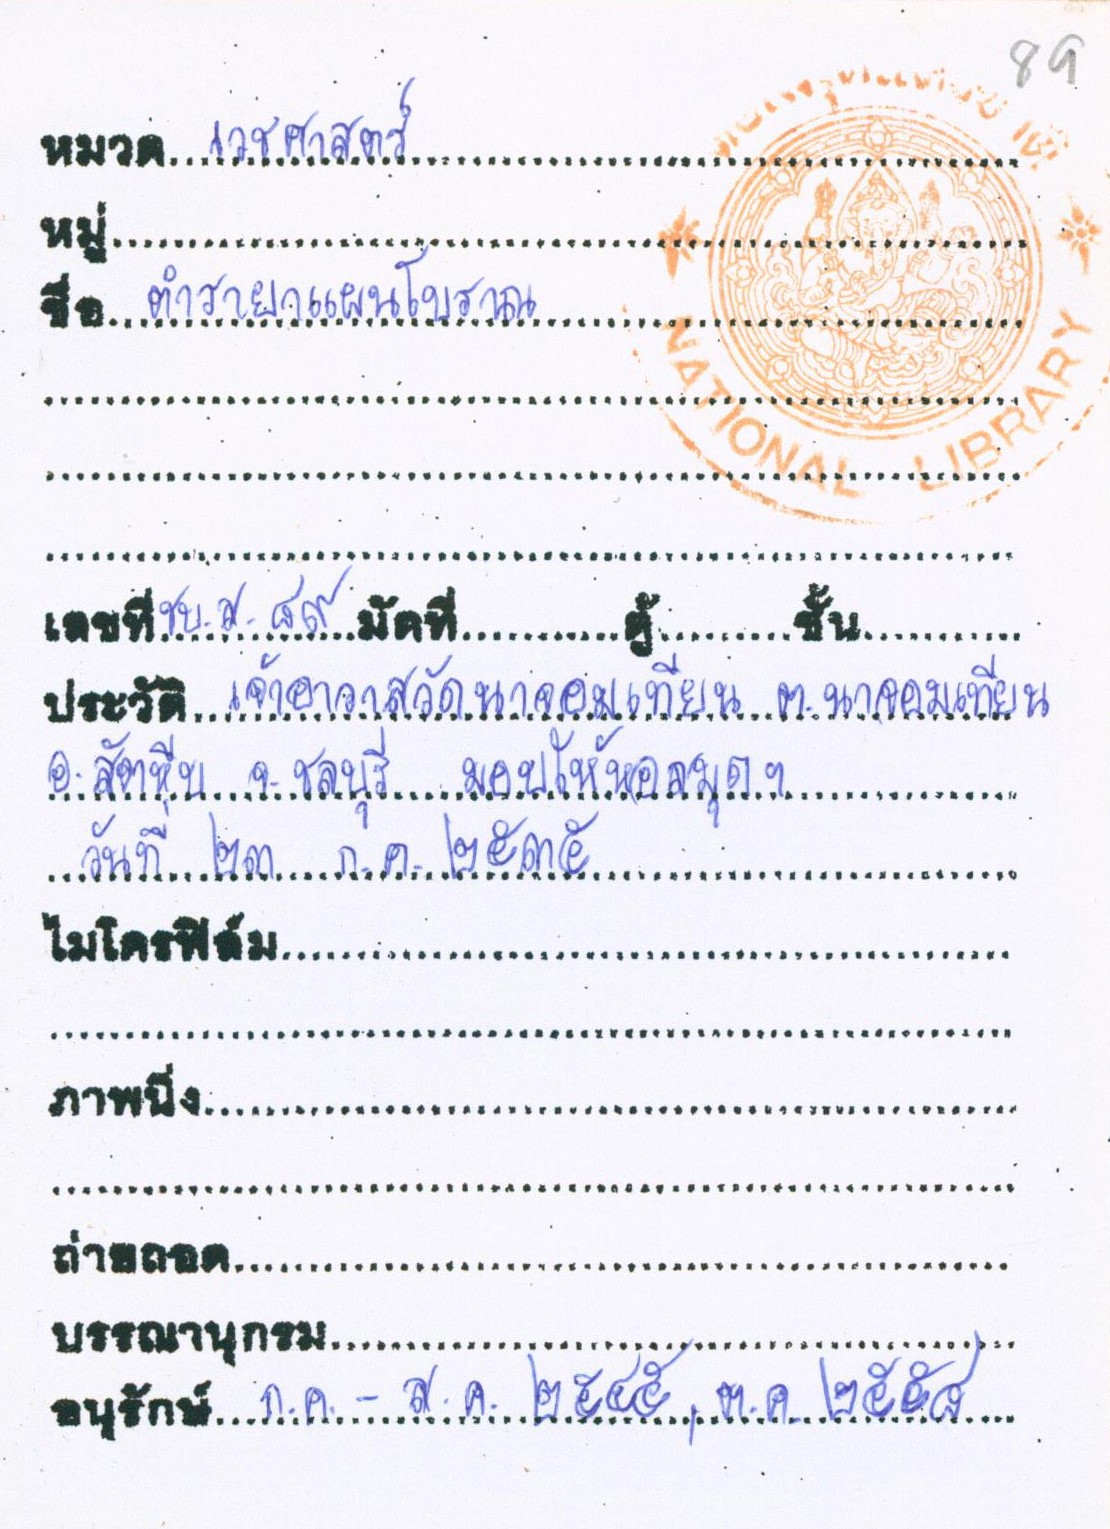 89
หมวด เวชศาสตร์
หมู่
ชื่อ ตำรายาแผนโบราณ
NATIONAL LIBRARY
เลขที่ ชบ.ส. ๘๙ มัดที่ ตู้ ชั้น
ประวัติ เจ้าอาวาสวัดนาจอมเทียน ต.นาจอมเทียน
อ.สัตหีบ จ.ชลบุรี มอบให้หอสมุดฯ
วันที่ ๒๓ ก.ค. ๒๕๓๕
ไมโครฟิล์ม
ภาพนิ่ง
ถ่ายถอด
บรรณานุกรม
อนุรักษ์ ก.ค. - ส.ค. ๒๕๔๕, ต.ค. ๒๕๕๘